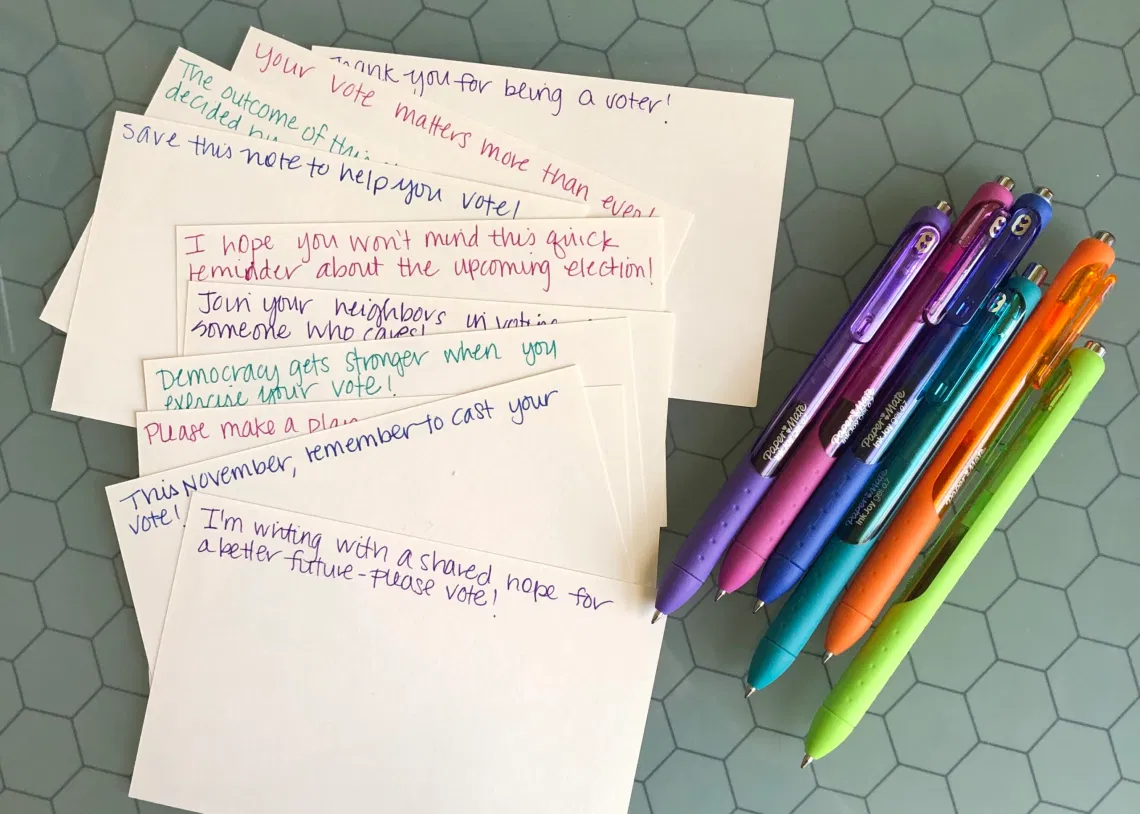 Thank you for being a voter!
Your vote matters more than ever!
The outcome of this
decided by
Save this note to help you vote!
I hope you won't mind this quick
reminder about the upcoming election!
Join your neighbors in voting
someone who cares!
Democracy gets stronger when you
exercise your vote!
Please make a plan
This November, remember to cast your
vote!
I'm writing with a shared hope for
a better future - please vote!
Paper Mate
Paper Mate
Paper Mate
InkJoy gel 0.7
Paper Mate
InkJoy gel 0.7
Paper Mate